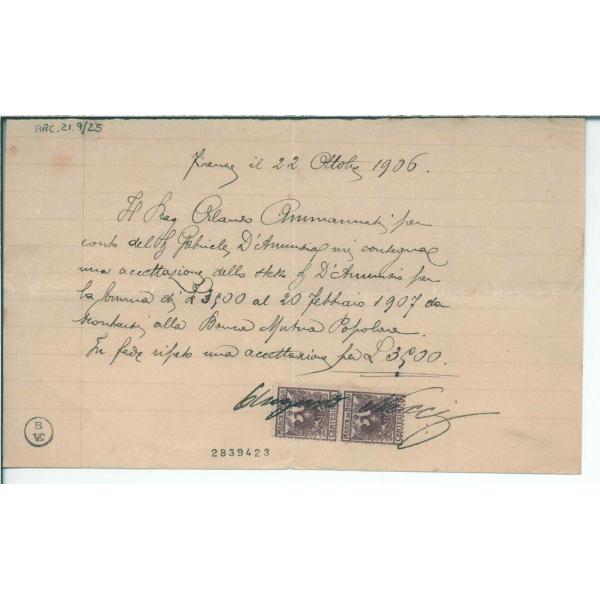 ARC.21.9/25
Firenze il 22 Ottobre 1906.
Il Rag Orlando Ammannati per
conto del S Gabriele D'Annunzio mi consegna
una accettazione dello stesso S D'Annunzio per
la somma di £ 3500 al 20 febbraio 1907 da
scontarsi alla Banca Mutua Popolare.
In fede ripeto una accettazione per £ 3500.
B
VE
2839423